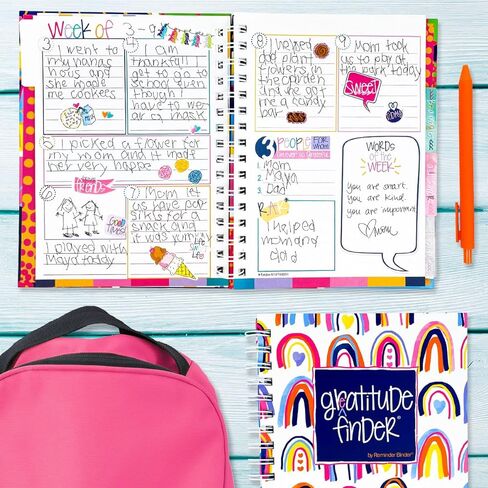 Week of 3-9
3 I went to
my nanas
hous and
she made
me cookees
4 I am
thankfull I
get to go to
school even
though I
have to wer
ar cq mask
5 I picked a flower for
my mom and it made
her very happe
friends
6
GOOD
TIMES!
I played with
Maya today
7 Mom let
us have pop
sikls for a
snack and
it was yummy
Life
is
Life
8 I helped
dad plant
flowers in
the garden
and he got
me a candy
bar
9 Mom took
us to play at
the park today
SWEET
3 People FOR WHOM
I'm ever so Grateful
1. Mom
2. Maya
3. Dad
I helped
mom and
dad
WORDS
OF THE
WEEK
You are smart.
you are kind.
you are important.
Mom
gratitude
finder
by Reminder Binder